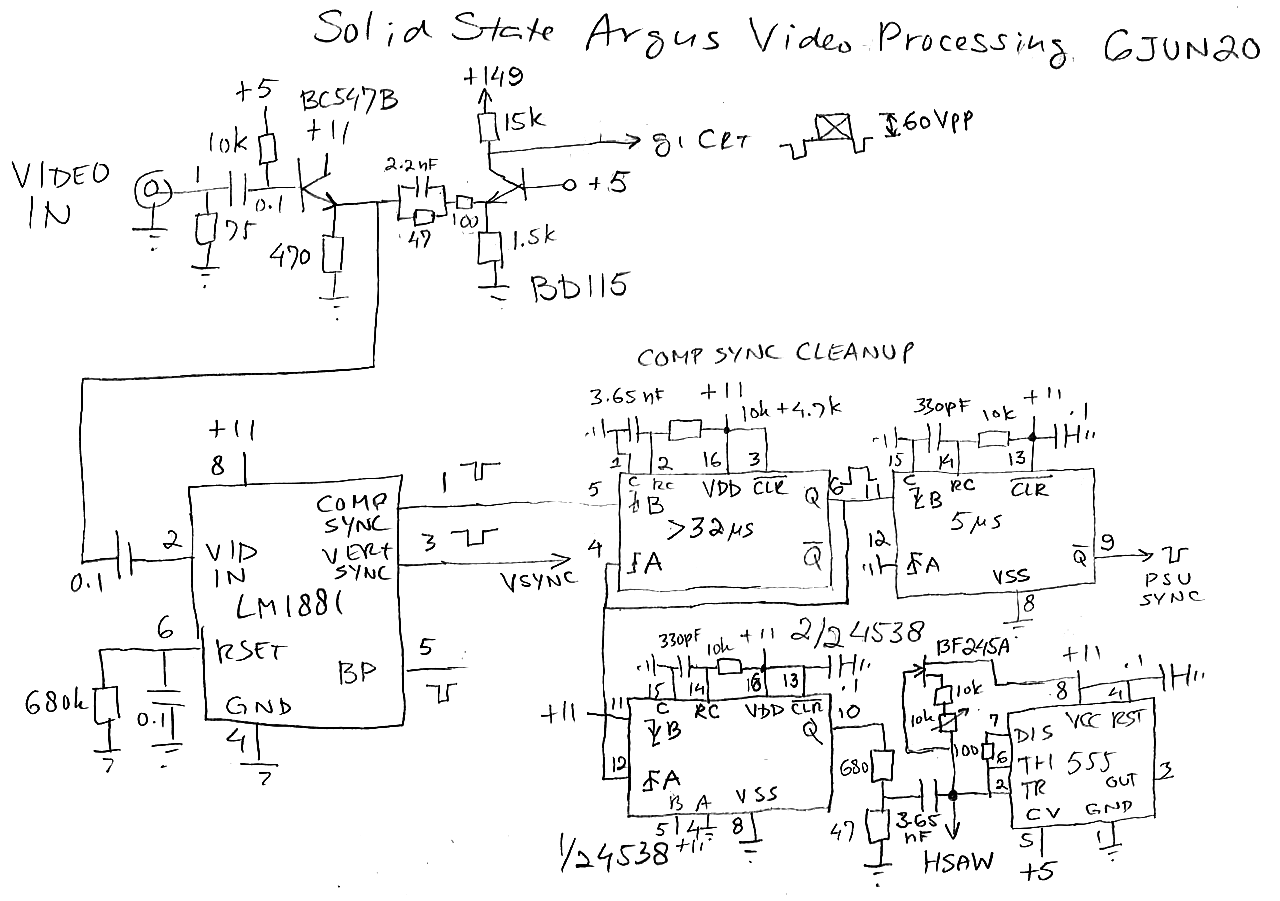 Solid State Argus Video Processing 6JUN20
+5
BC547B
+11
10k
+149
15k
g1 CRT
60Vpp
VIDEO
IN
1
0.1
75
470
2.2nF
47
100
+5
1.5k
BD115
COMP SYNC CLEANUP
3.65nF
+11
10k+4.7k
330pF
10k
+11
.1
+11
8
1
2
16
3
15
14
13
C
RC
VDD
CLR
C
RC
CLR
COMP
SYNC
1
5
B
Q
6
11
B
>32µs
5µs
VERT
SYNC
3
VSYNC
4
A
Q
12
A
VSS
8
Q
9
PSU
SYNC
0.1
2
VID
IN
LM1881
6
RSET
BP
5
680k
0.1
GND
4
330pF
10k
+11
2/2 4538
.1
15
14
16
13
+11
11
C
RC
VDD
CLR
10
B
Q
12
A
B
A
VSS
5
4
8
+11
1/2 4538
680
47
3.65
nF
HSAW
BF245A
10k
10k
100
+11
.1
8
4
7
DIS
VCC
RST
6
TH
555
2
TR
OUT
3
CV
GND
5
1
+5